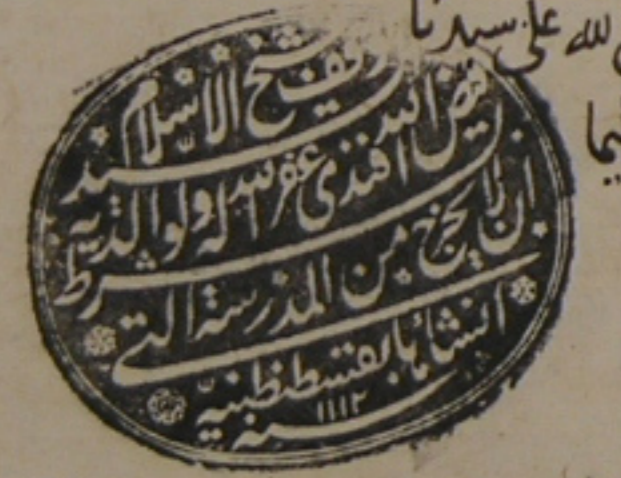 لله على سيدنا
وقف شيخ الاسلام السيد
فيض الله افندى غفر الله له ولوالديه بشرط
ان لا يخرج من المدرسة التي
انشأها بقسطنطنية
سنة ١١١٢